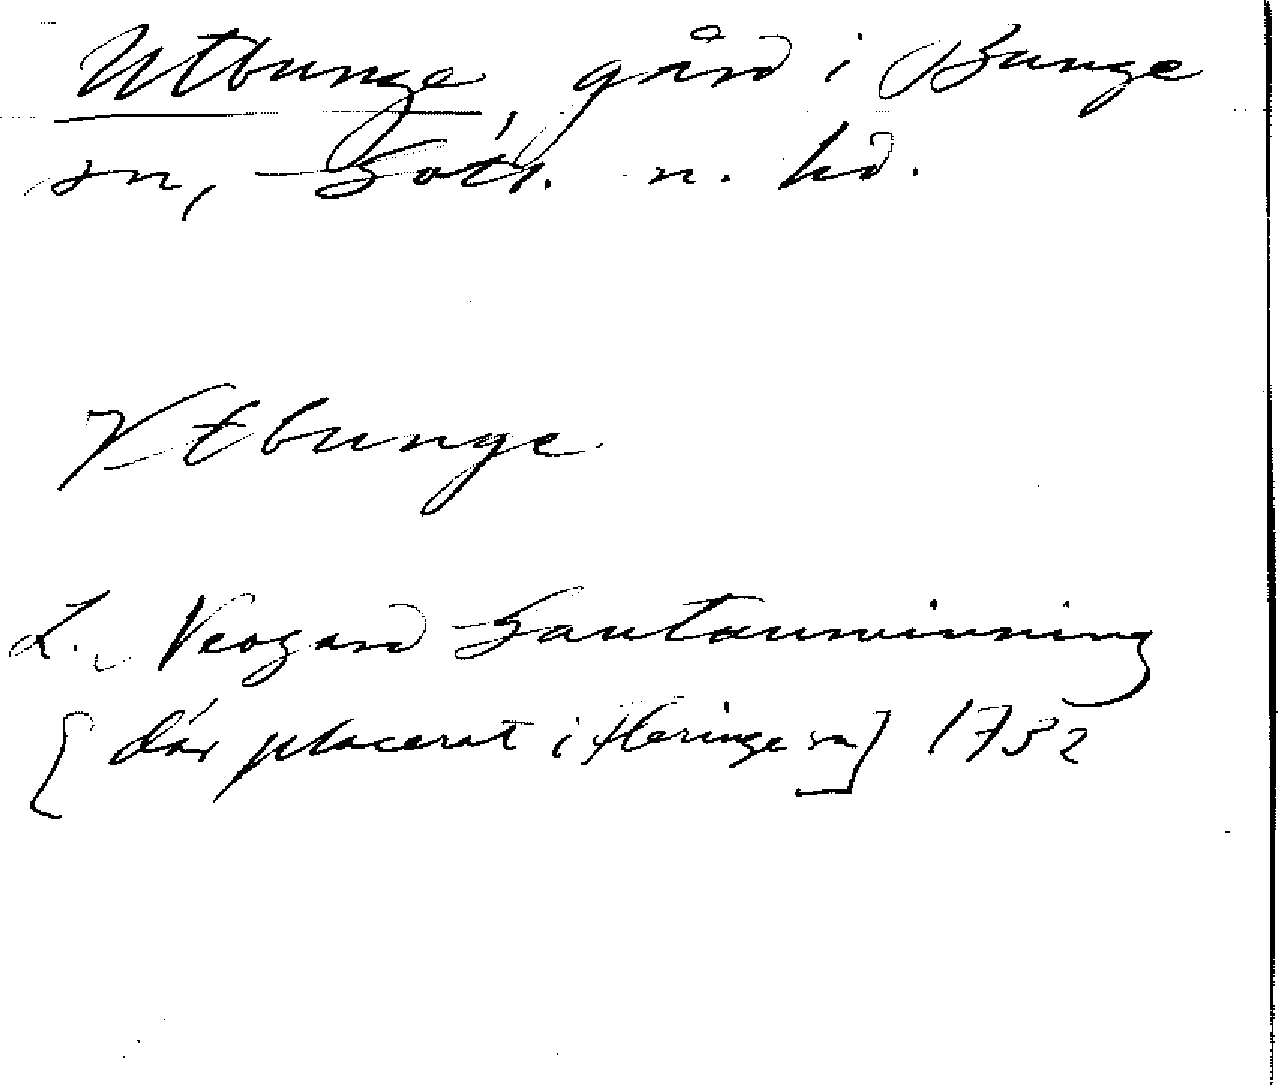 Utbunge, gård i Bunge
sn, Gotl. n. hd.
Vtbunge
L. Neogard Gautauminning
[där placerat i Fleringe sn] 1732